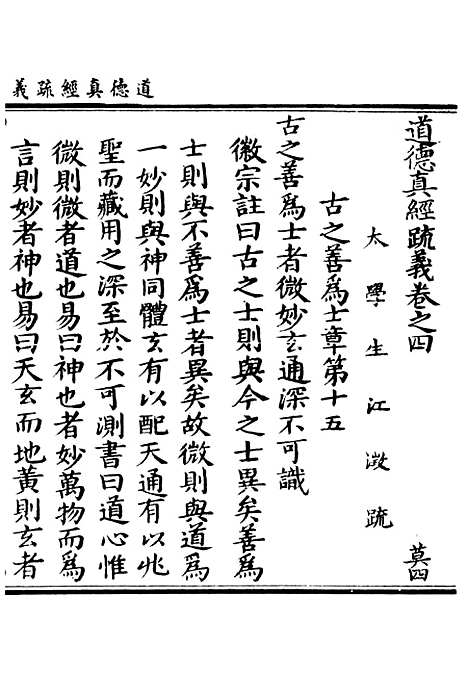 道德真經疏義
道德真經疏義卷之四　莫四
太學生江澂疏
古之善爲士章第十五
古之善爲士者微妙玄通深不可識
徽宗註曰古之士則與今之士異矣善爲
士則與不善爲士者異矣故微則與道爲
一妙則與神同體玄有以配天通有以兆
聖而藏用之深至於不可測書曰道心惟
微則微者道也易曰神也者妙萬物而爲
言則妙者神也易曰天玄而地黃則玄者